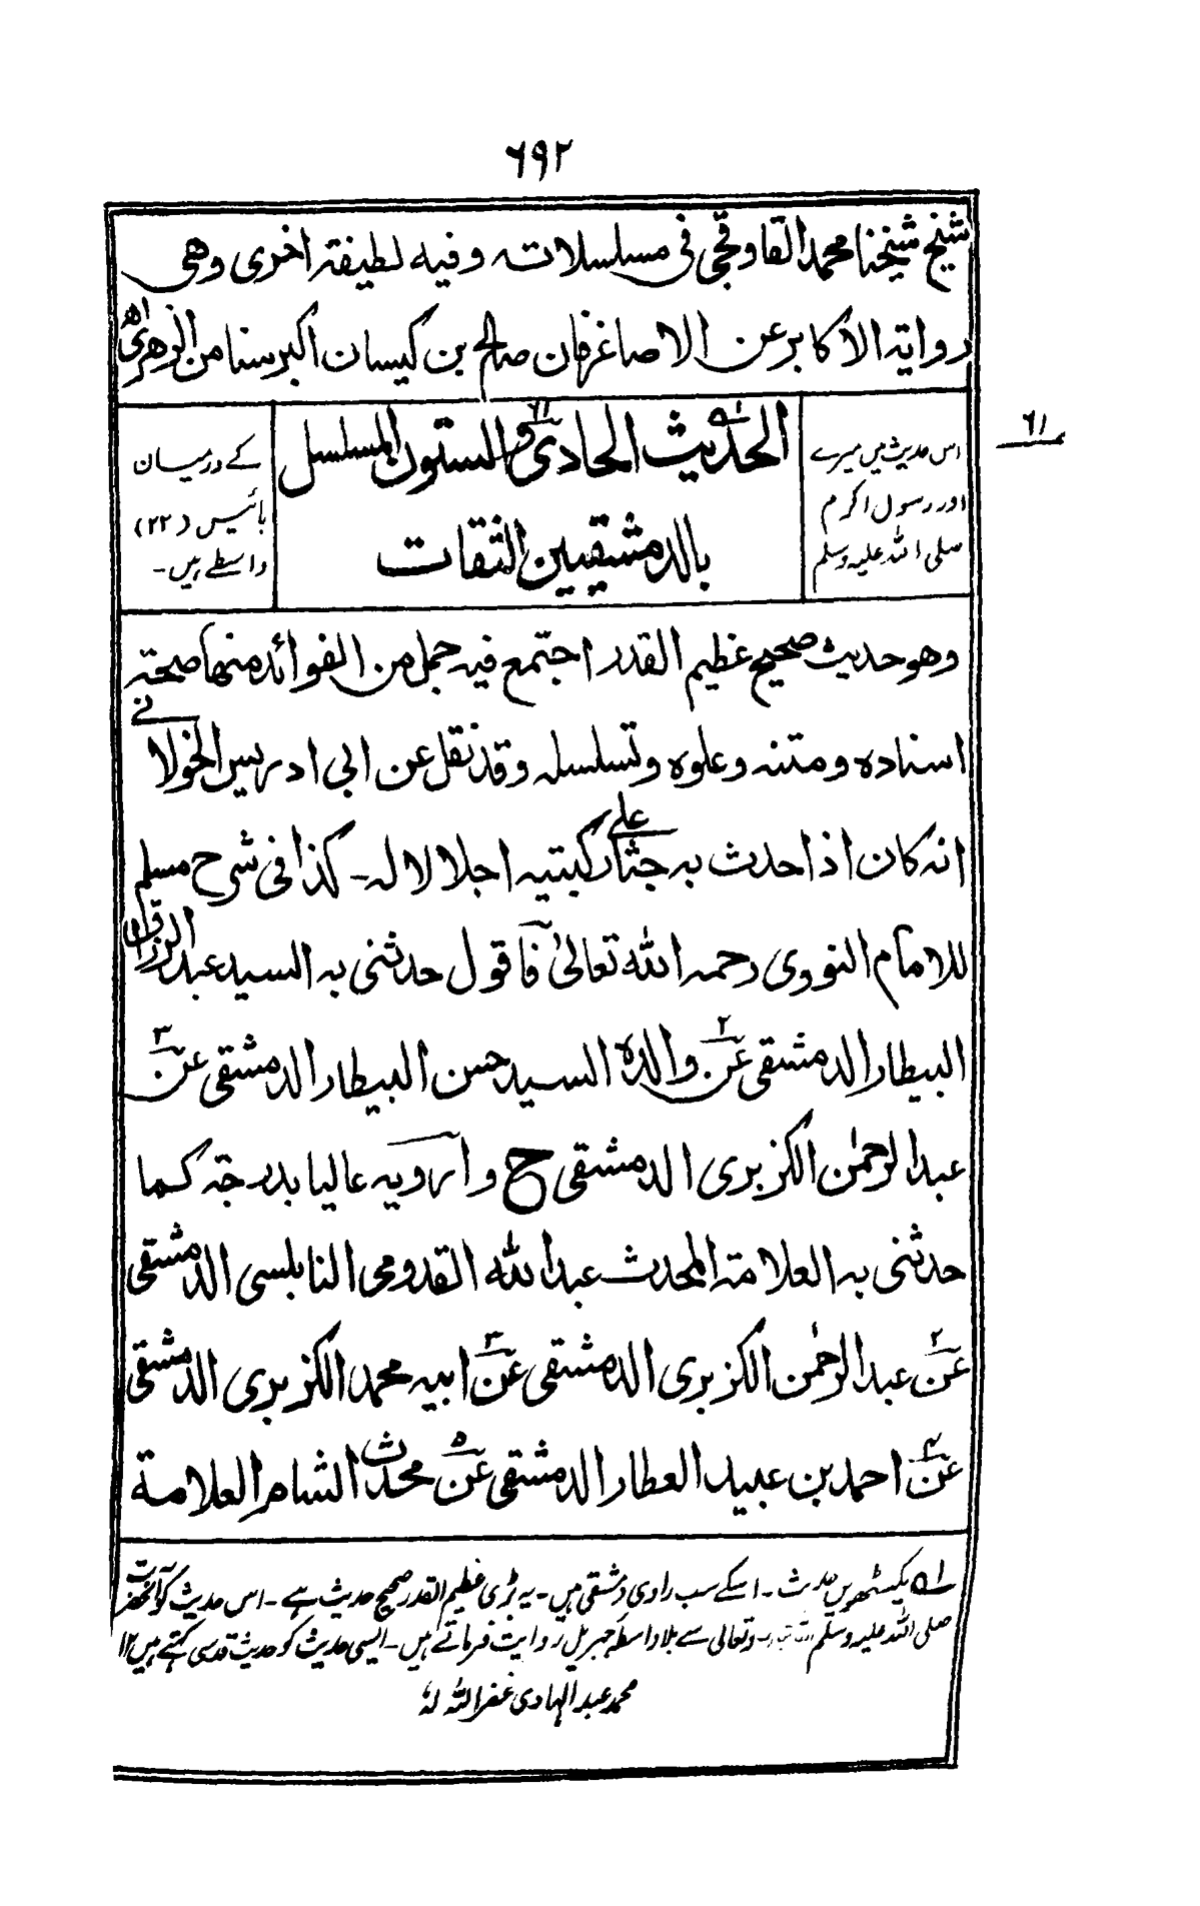 ٦٩٢
شيخ شيخنا محمد القاوقجى فى مسلسلاته وفيه لطيفة اخرى وهى
رواية الاكابر عن الاصاغر فان صالح بن كيسان اكبر سنا من الزهرى اھ
٦١
اس حدیث میں میرے
اور رسول اکرم
صلی اللہ علیہ وسلم
الحديث الحادى والستون المسلسل
بالدمشقيين الثقات
کے درمیان
بائیس (۲۲)
واسطے ہیں۔
وهو حديث صحيح عظيم القدر اجتمع فيه جمل من الفوائد منها صحة
اسناده ومتنه وعلوه وتسلسله وقد نقل عن ابى ادريس الخولانى
انه كان اذا حدث به جثا على ركبتيه اجلالا له۔ كذا فى شرح مسلم
للامام النووى رحمه الله تعالىٰ فاقول حدثنى به السيد عبد الرزاق
البيطار الدمشقى عن ٢ والده السيد حسن البيطار الدمشقى عن ٣
عبد الرحمٰن الكزبرى الدمشقى ح وارويه عاليا بدرجة كما
حدثنى به العلامة المحدث عبد الله القدومى النابلسى الدمشقى
عن ٢ عبد الرحمٰن الكزبرى الدمشقى عن ٣ ابيه محمد الكزبرى الدمشقى
عن ٤ احمد بن عبيد العطار الدمشقى عن ٥ محدث الشام العلامة
ا؎ یکسٹھویں حدیث۔ اسکے سب راوی دمشقی ہیں۔ یہ بڑی عظیم القدر صحیح حدیث ہے۔ اس حدیث کو آنحضرت
صلی اللہ علیہ وسلم وتعالی سے بلا واسطہ جبریل روایت فرماتے ہیں۔ ایسی حدیث کو حدیث قدسی کہتے ہیں ۱۲
محمد عبد الہادی غفر اللہ لہٗ